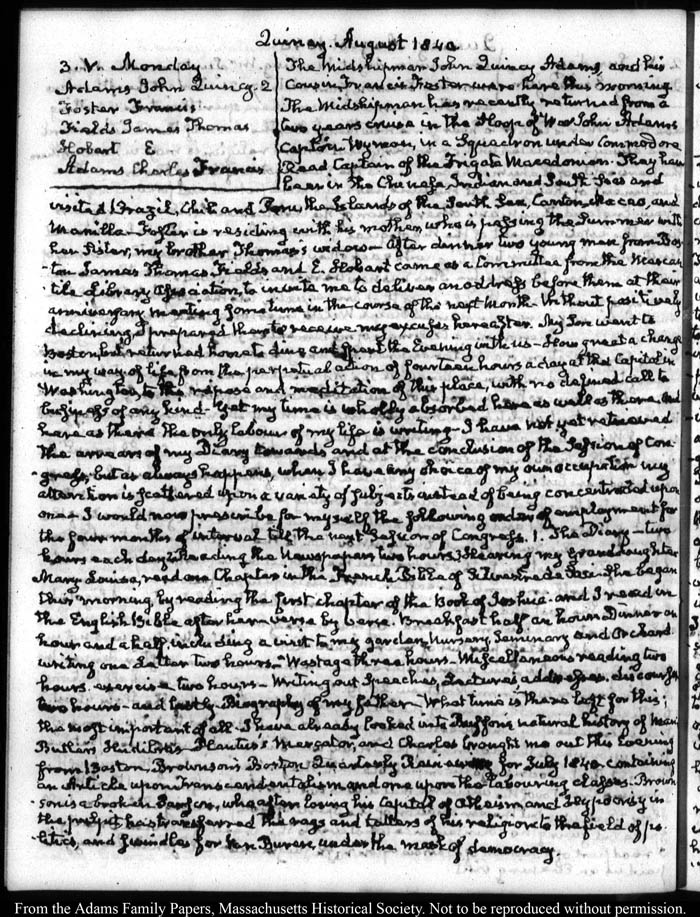 Quincy. August 1840
3. V. Monday
Adams John Quincy 2
Foster Francis
Fields James Thomas
Hobart E
Adams Charles Francis
The Midshipman John Quincy Adams, and his
Cousin Francis Foster were here this morning
The Midshipman has recently returned from a
two years cruise in the Sloop of War John Adams
Captain Wyman, in a Squadron under Commodore
Read Captain of the Frigate Macedonian. They have
been in the Chinese, Indian and South Seas and
visited Brazil, Chili and Peru the Islands of the South Sea, Canton, Macao, and
Manilla. Foster is residing with his mother, who is passing the Summer with
her Sister, my brother Thomas's widow. After dinner two young men from Bos-
-ton James Thomas Fields and E. Hobart came as a Committee from the Mercan-
tile Library Association, to invite me to deliver an address before them at their
anniversary meeting some time in the course of the next Month. Without positively
declining I prepared them to receive my excuses hereafter. My Son went to
Boston but returned home to dine and spent the Evening with us. How great a change
in my way of life from the perpetual action of fourteen hours a day at the Capitol in
Washington, to the repose and meditation of this place, with no defined call to
business of any kind. Yet my time is wholly absorbed here as well as there, and
here as there the only labour of my life is writing. I have not yet retrieved
the arrears of my Diary towards and at the conclusion of the Session of Con-
-gress, but as always happens, when I have any choice of my own occupation my
attention is scattered upon a variety of subjects instead of being concentrated upon
one. I would now prescribe for myself the following order of employment for
the four months of interval till the next Session of Congress. 1. The Diary - two
hours each day. Reading the Newspapers two hours. Hearing my Granddaughter
Mary Louisa, read one Chapter in the French Bible of Silvestre de Saci. She began
this morning by reading the first chapter of the Book of Joshua. and I read in
the English Bible after her verse by verse. Breakfast half an hour. Dinner an
hour and a half, including a visit to my garden, Nursery, Seminary and Orchard.
writing one Letter two hours. Wastage three hours. Miscellaneous reading two
hours. exercise two hours. Writing out Speeches, Lectures addresses, discourses
two hours - and lastly Biography of my father. What time is there left for this;
the most important of all. I have already looked into Buffon's natural history of Man;
Plautus's Mercator, and Charles brought me out this Evening
from Boston, Brownson's Boston Quarterly Review for July 1840 containing
an Article upon Transcendentalism and one upon the labouring classes. Brown
son is a broken Parson, who after losing his capital of Atheism and Hypocrisy in
the pulpit has transferred the rags and tatters of his religion to the field of po-
-litics, and swindles for Van Buren, under the mask of democracy.
From the Adams Family Papers, Massachusetts Historical Society. Not to be reproduced without permission.